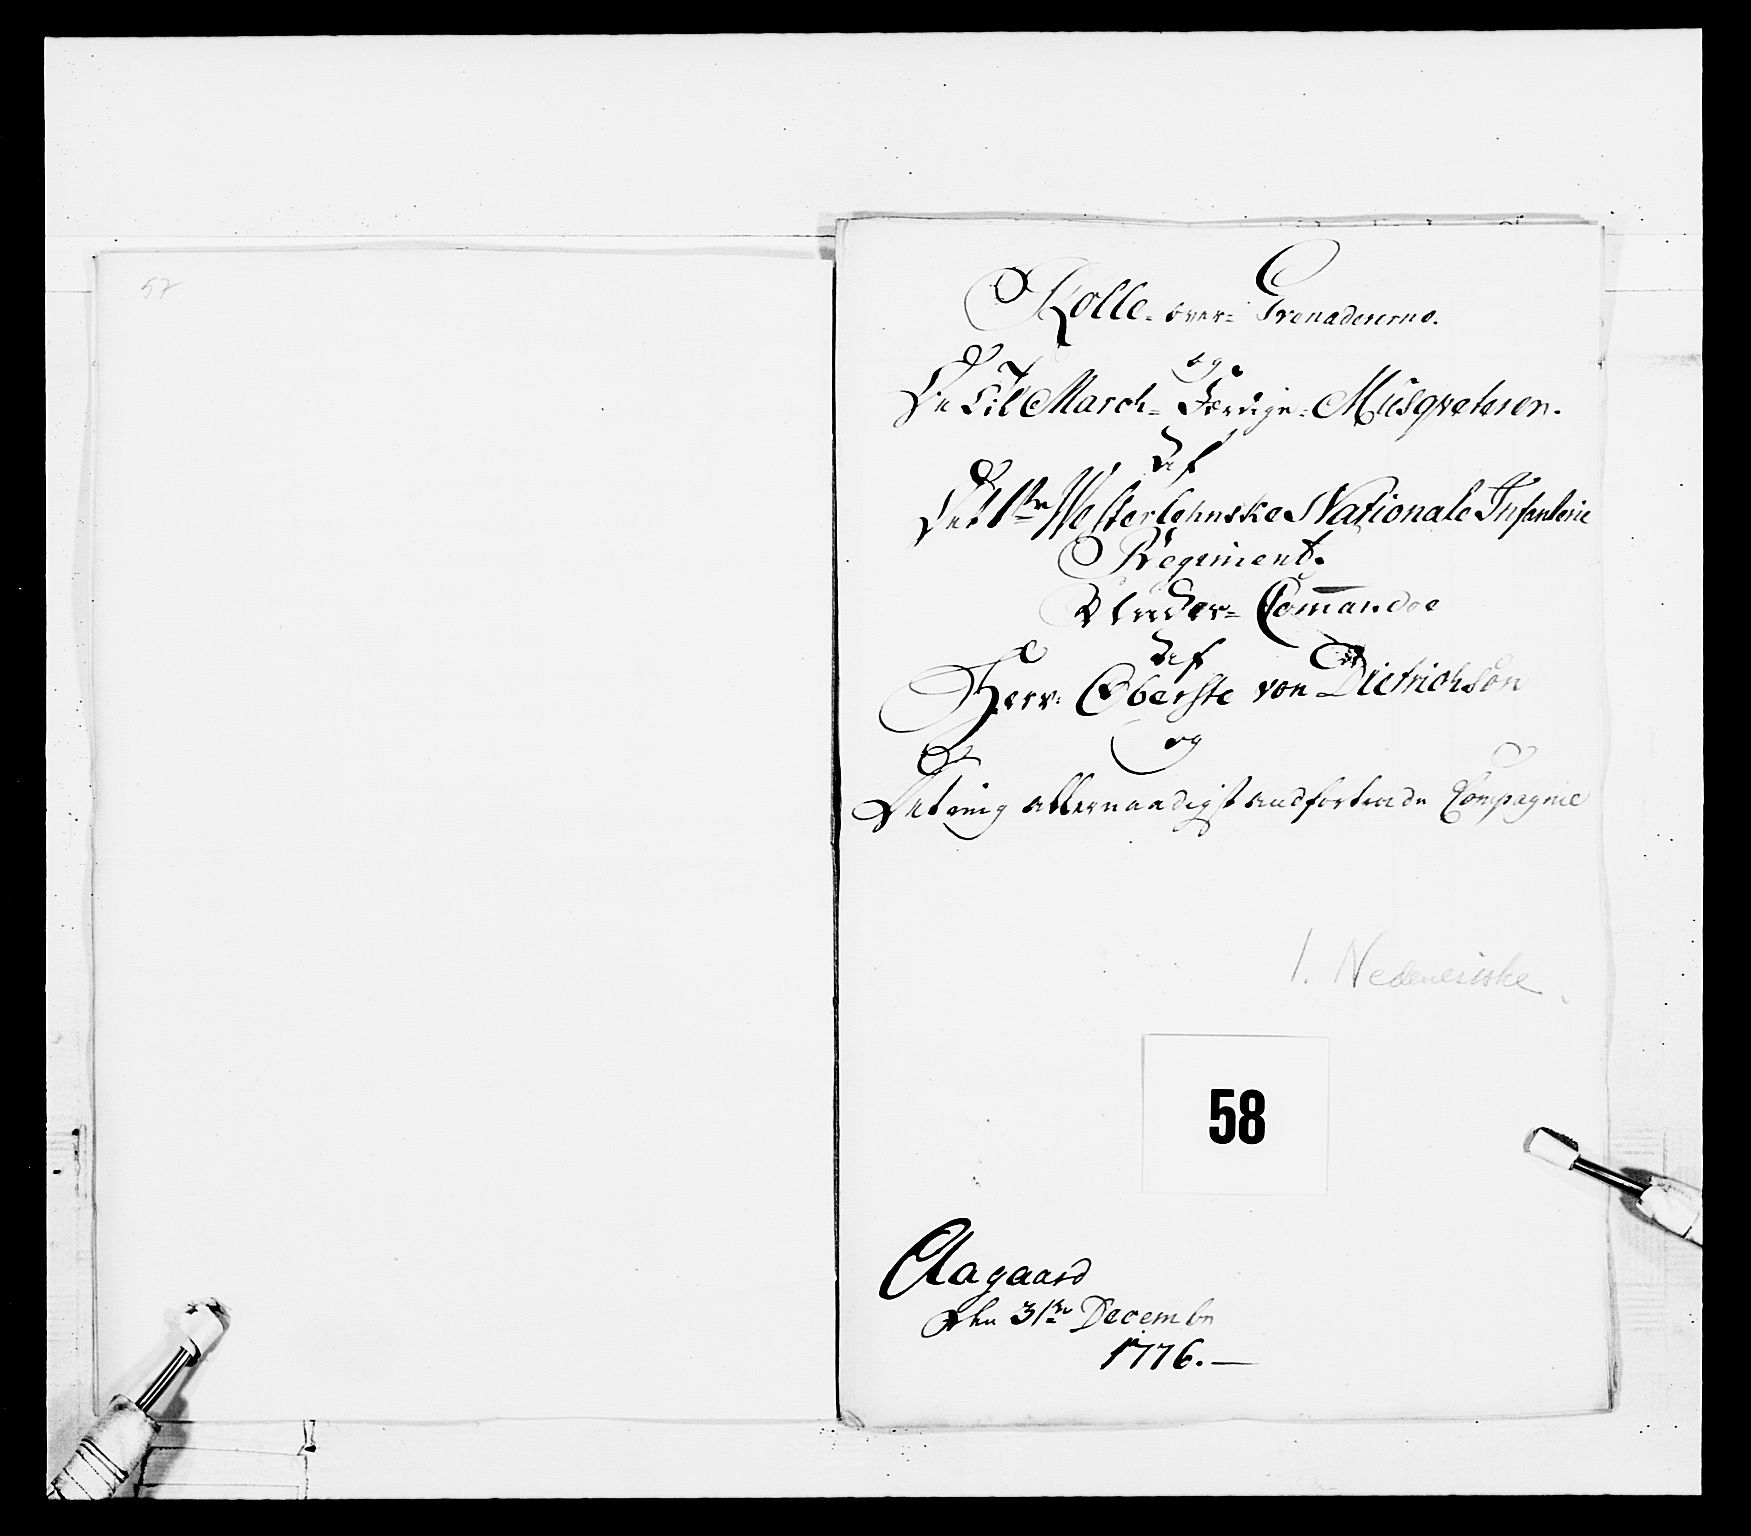 57
Rolle over Grenadererne.
og
De til March-Færdige Musqveterer.
Af
Det 1ste Westerlehnske Nationale Infanterie
Regiment.
Under Com̄andoe
Af
Herr Oberste von Dietrichson
og
Det mig allernaadigst andfortroede Compagnie
1. Nedenesiske
58
Aagaard
den 31te Decembr
1776.—